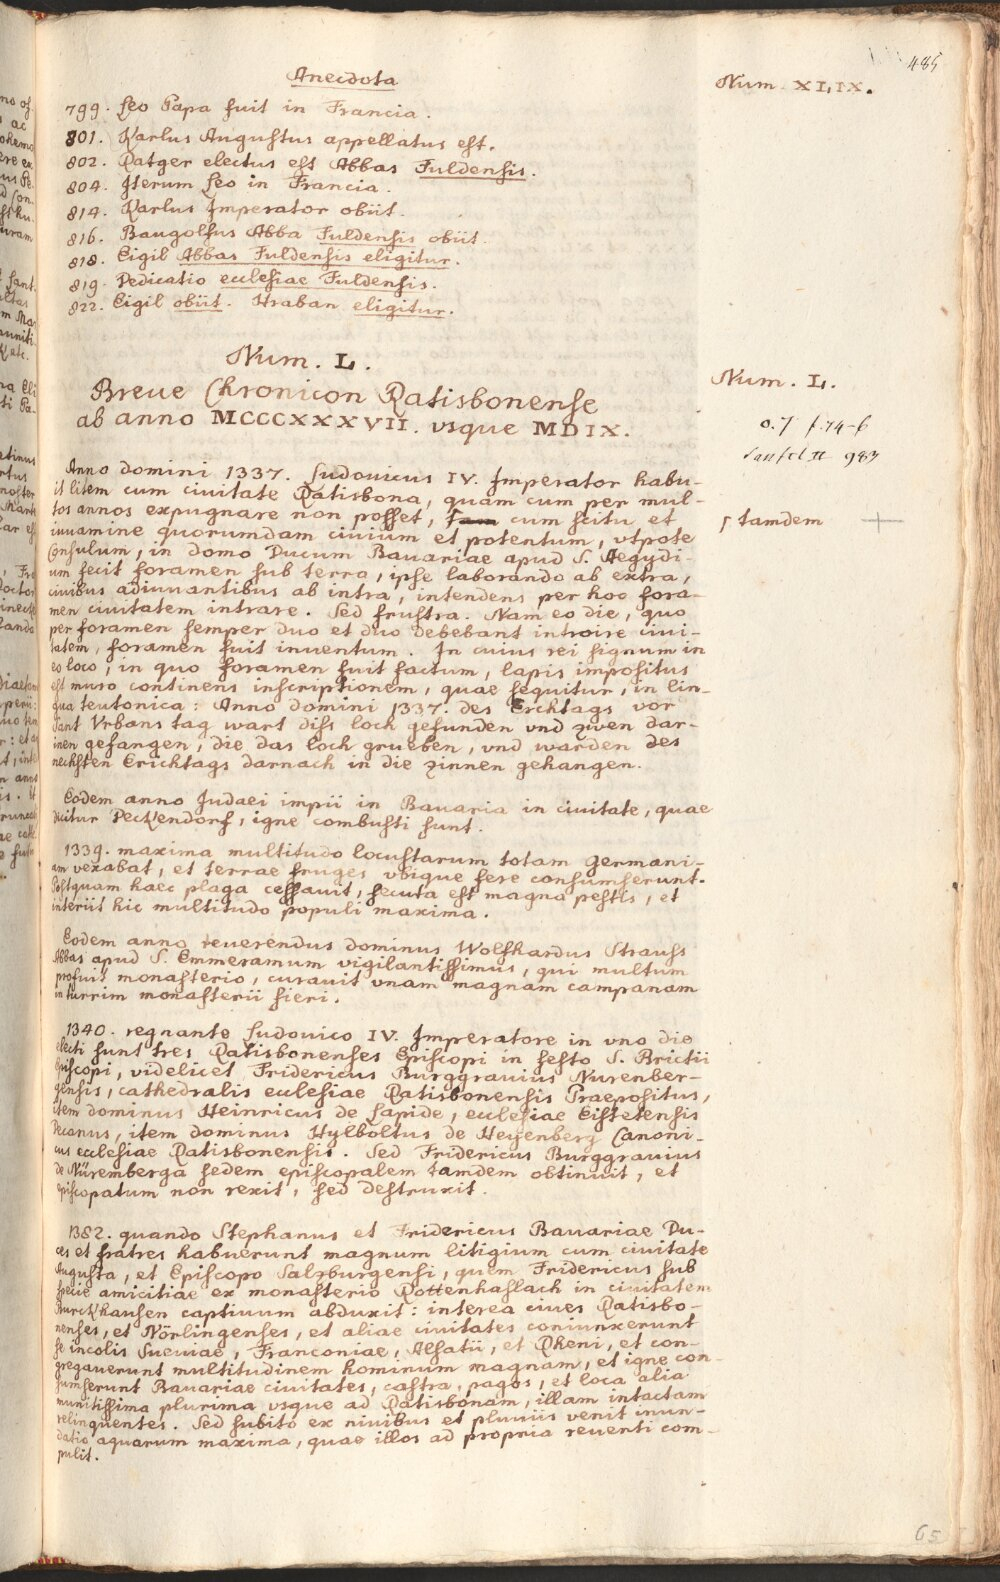 485
Anecdota
Num. XLIX.
799. Leo Papa fuit in Francia.
801. Karlus Augustus appellatus est.
802. Ratger electus est Abbas Fuldensis.
804. Iterum Leo in Francia.
814. Karlus Imperator obiit.
816. Baugolfus Abba Fuldensis obiit.
818. Eigil Abbas Fuldensis eligitur.
819. Dedicatio ecclesiae Fuldensis.
822. Eigil obiit. Hraban eligitur.
Num. L.
Num. L.
Breue Chronicon Ratisbonense
ab anno MCCCXXXVII. vsque MDIX.
o. 7 f. 74-b
II 983
Anno domini 1337. Ludouicus IV. Imperator habu-
it litem cum ciuitate Ratisbona, quam cum per mul-
tos annos expugnare non posset, cum scitu et
tamdem
iuuamine quorumdam ciuium et potentum, vtpote
Consulum, in domo Ducum Bauariae apud S. Aegydi-
um fecit foramen sub terra, ipse laborando ab extra,
ciuibus adiuuantibus ab intra, intendens per hoc fora-
men ciuitatem intrare. Sed frustra. Nam eo die, quo
per foramen semper duo et duo debebant introire ciui-
tatem, foramen fuit inuentum. In cuius rei signum in
eo loco, in quo foramen fuit factum, lapis impositus
est muro continens inscriptionem, quae sequitur, in lin-
gua teutonica: Anno domini 1337. des Erchtags vor
Sant Vrbans tag wart diss loch gefunden vnd zwen dar-
inen gefangen, die das loch grueben, vnd warden des
nechsten Erichtags darnach in die zinnen gehangen.
Eodem anno Judaei impii in Bauaria in ciuitate, quae
dicitur Deckendorf, igne combusti sunt.
1339. maxima multitudo locustarum totam Germani-
am vexabat, et terrae fruges vbique fere consumserunt.
Postquam haec plaga cessauit, secuta est magna pestis, et
interiit hic multitudo populi maxima.
Eodem anno reuerendus dominus Wolfhardus Strauss
Abbas apud S. Emmeramum vigilantissimus, qui multum
profuit monasterio, curauit vnam magnam campanam
in turrim monasterii fieri.
1340. regnante Ludouico IV. Imperatore in vno die
electi sunt tres Ratisbonenses Episcopi in festo S. Brictii
Episcopi, videlicet Fridericus Burggrauius Nurenber-
gensis, cathedralis ecclesiae Ratisbonensis Praepositus,
item dominus Heinricus de Lapide, ecclesiae Eistetensis
Decanus, item dominus Hylboltus de Heysenberg Canoni-
cus ecclesiae Ratisbonensis. Sed Fridericus Burggrauius
de Nüremberga sedem episcopalem tamdem obtinuit, et
episcopatum non rexit, sed destruxit.
1382. quando Stephanus et Fridericus Bauariae Du-
ces et fratres habuerunt magnum litigium cum ciuitate
Augusta, et Episcopo Salzburgensi, quem Fridericus sub
specie amicitiae ex monasterio Rottenhaslach in ciuitatem
Burckhausen captiuum abduxit: interea ciues Ratisbo-
nenses, et Nörlingenses, et aliae ciuitates coniunxerunt
se incolis Sueuiae, Franconiae, Alsatii, et Rheni, et con-
gregauerunt multitudinem hominum magnam, et igne con-
sumserunt Bauariae ciuitates, castra, pagos, et loca alia
munitissima plurima vsque ad Ratisbonam, illam intactam
relinquentes. Sed subito ex niuibus et pluuiis venit inun-
datio aquarum maxima, quae illos ad propria reuerti com-
pulit.
65